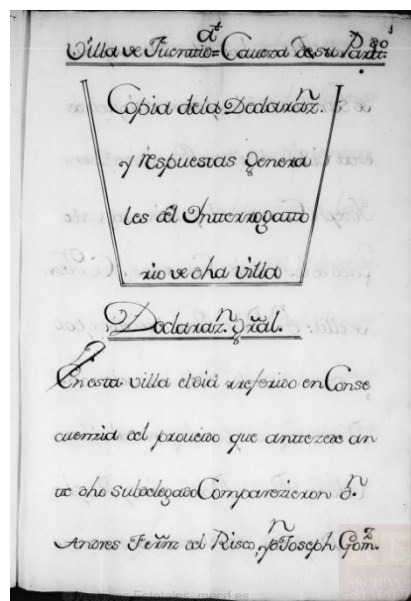 Villa de Fucratio = Caueza de su Partdo.
Copia de la Declarazn.
y respuestas genera
les del Ynterrogatto
rio de dha villa
Declarazn. gral.
En esta villa el dia rreferido en Conse
cuenzia del proueido que anttezede an
te dho subdelegado Comparezieron dn.
Andres Fernz del Risco, y dn Joseph Gomz.